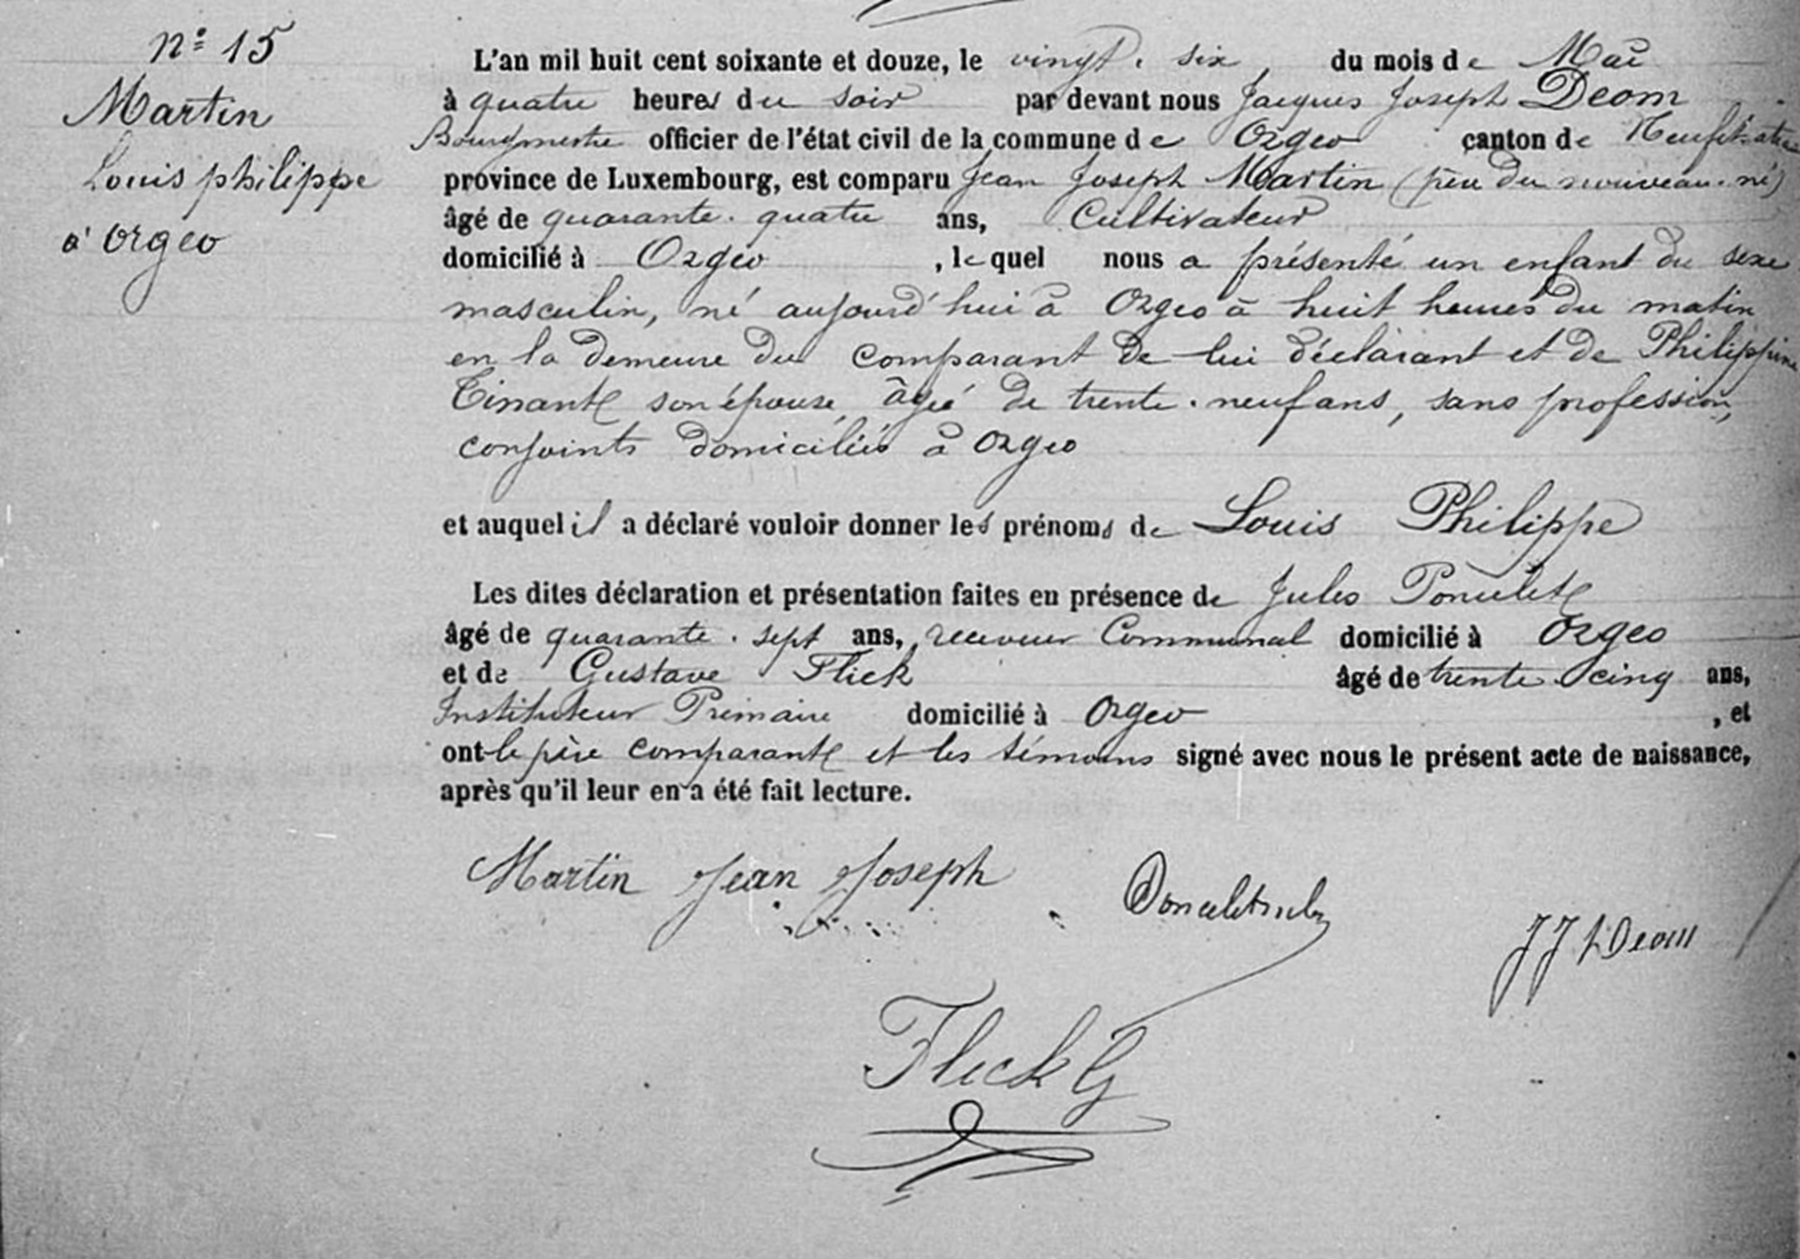 N° 15
Martin
Louis philippe
à Orgeo
L'an mil huit cent soixante et douze, le vingt-six, du mois de Mai
à quatre heures du soir par devant nous Jacques Joseph Deom
Bourgmestre officier de l'état civil de la commune de Orgeo canton de Neufchateau
province de Luxembourg, est comparu Jean Joseph Martin (père du nouveau-né)
âgé de quarante-quatre ans, Cultivateur
domicilié à Orgeo, lequel nous a présenté un enfant du sexe
masculin, né aujourd'hui à Orgeo à huit heures du matin
en la demeure du comparant de lui déclarant et de Philippine
Tinant son épouse, âgée de trente-neuf ans, sans profession,
conjoints domiciliés à Orgeo
et auquel il a déclaré vouloir donner les prénoms de Louis Philippe
Les dites déclaration et présentation faites en présence de Jules Poncelet
âgé de quarante-sept ans, receveur Communal domicilié à Orgeo
et de Gustave Flick âgé de trente cinq ans,
Instituteur Primaire domicilié à Orgeo, et
ont le père comparant et les témoins signé avec nous le présent acte de naissance,
après qu'il leur en a été fait lecture.
Martin Jean Joseph
JJ Deom
Flick G